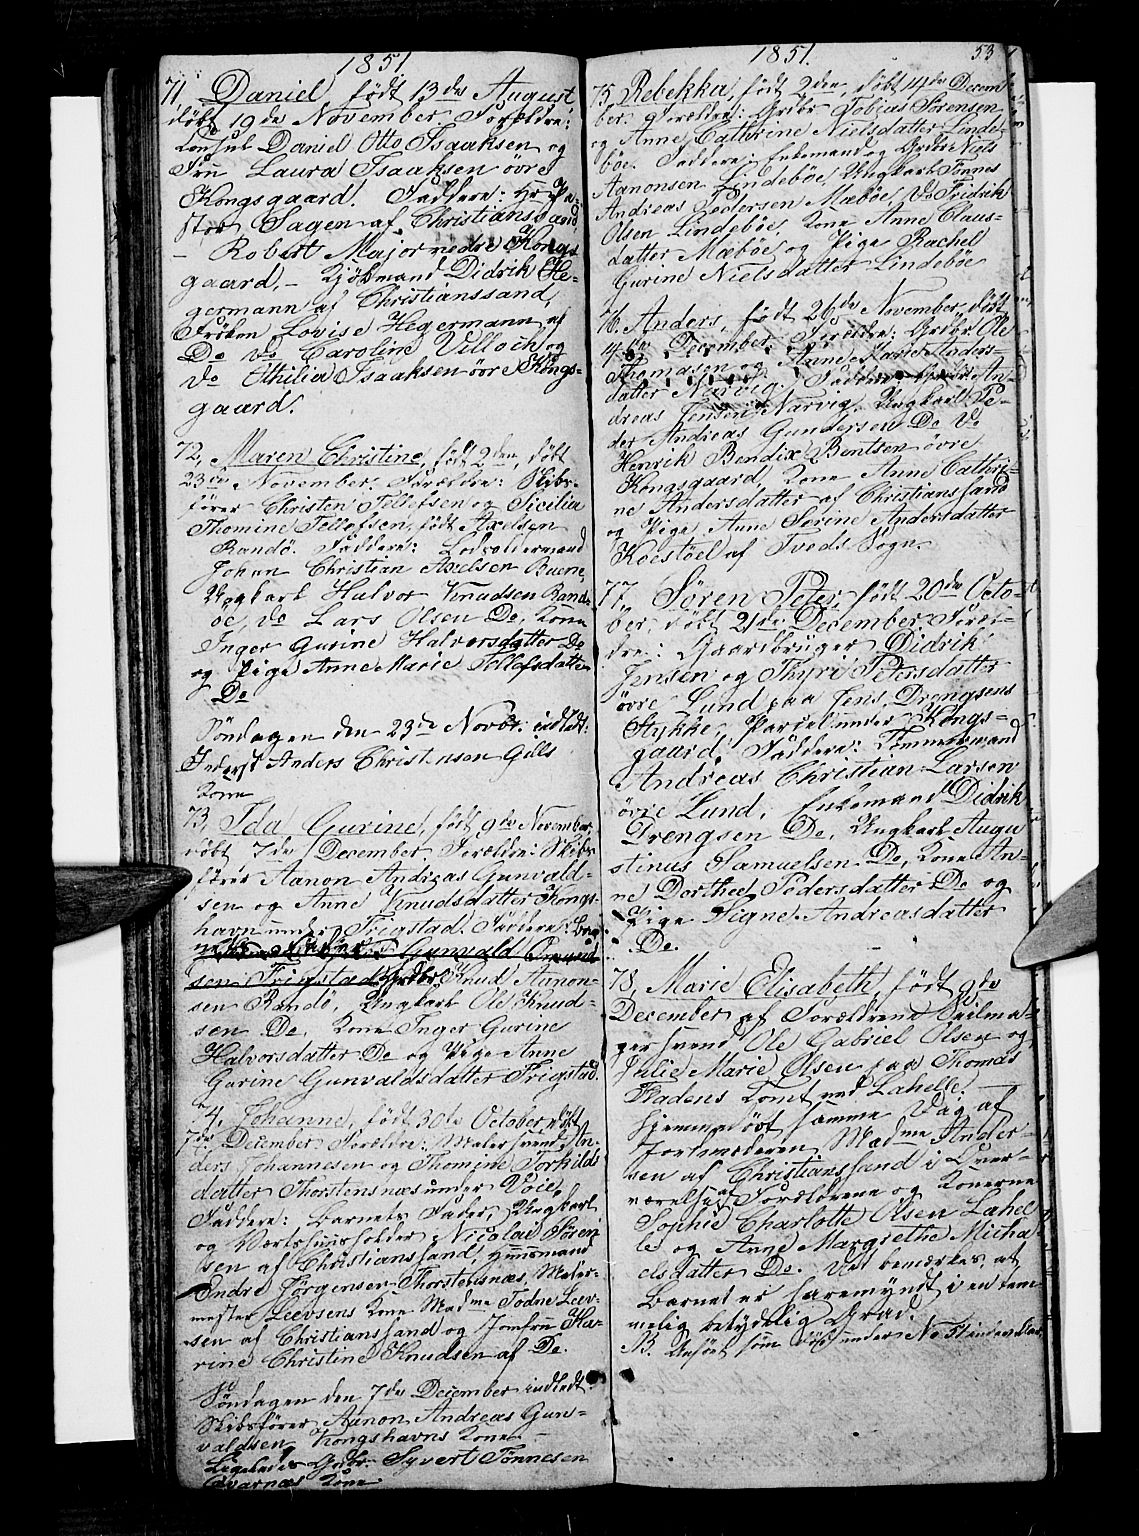 1851.
71, Daniel født 13de August
døbt 19de November Forældre:
Konsul Daniel Otto Isaaksen og
Fru Laura Isaaksen øvre
Kongsgaard. Faddere: Hr Pa-
stor Sagen af Christianssand
- Robert Major nedre Kongs
gaard, - Kjøbmand Didrik He-
germann af Christianssand,
Frøken Lovise Hegermann af
Do Do Caroline Villoch og
Do Othilia Isaaksen øvre Kongs-
gaard.
72, Maren Christine, født 2den, døbt
23de November. Forældre: Skibs-
fører Christen Tellefsen og Sicilia
Thomine Tellefsen, født Axelsen
Randö. Faddere: Lodsoldermand
Johan Christian Axelsen Buene,
Ungkarl Halvor Knudsen Rand-
öe, do Lars Olsen Do, Kone
Inger Gurine Halvorsdatter Do
og Pige Anne Marie Tellefsdatter
Do
Søndagen den 23de Novbr. indledt:
Inderst Anders Christensen Gills
Kone
73, Ida Gurine, født 9de November,
døbt 7de December. Forældre: Skibs
fører Aanon Andreas Gunvald-
sen og Anne Knudsdatter Kongs-
havn under Frigstad. Faddere: Bar-
nets Fader Gunvald Omund
sen Frigstad Grdbr. Knud Aanon-
sen Randö, Ungkarl Ole Knud-
sen Do, Kone Inger Gurine
Halvorsdatter Do og Pige Anne
Gurine Gunvaldsdatter Frigstad.
74, Johanne, født 30te October, døbt
7de December Forældre: Malersvend An-
ders Johannesen og Thomine Torkilds
datter Thorstensnæs under Voie.
Faddere: Barnets Fader, Ungkarl
og Værtshuusholder Nicolai Sören
sen af Christianssand, Huusmand
Endre Jörgensen Thorstensnæs, Maler-
mester Leevsens Kone Madme Todne Leev-
sen af Christianssand og Jomfru Ka-
rine Christine Knudsen af Do.
Søndagen den 7de December indledt:
Skibsfører Aanon Andreas Gun-
valdsen, Kongshavns Kone -
Ligeledes Grbr. Syvert Tönnesen
Kone.
1851.
53
75, Rebekka, født 2den, døbt 14de Decem-
ber Forældre: Grdbr Tobias Sörensen
og Anne Cathrine Nielsdatter Linde-
böe. Faddere: Enkemand og Grdbr Niels
Aanonsen Lindebøe, Ungkarl Tönnes
Andreas Pedersen Mæbøe, Do Fredrik
Olsen Lindebøe, Kone Anne Claus-
datter Mæbøe og Pige Rachel
Gurine Nielsdatter Lindebøe
76, Anders, født 26de November, døbt
14de December, Forældre: Grdbr Ole
Thomasen og Anne Marie Anders-
datter Narvig. Faddere: Grdbr An-
dreas Jensen Narvig, Ungkarl Pe-
der Andreas Gundersen Do Do
Henrik Bendix Bentsen øvre
Kongsgaard, Kone Anne Cathri-
ne Andersdatter af Christianssand
og Pige Anne Serine Andersdatter
Koestöel af Tveds Sogn.
77, Søren Peter, født 20de Octo-
ber, døbt 21de December Foræl-
dre: Gaardbruger Didrik
Jensen og Thyri Petersdatter
øvre Lund paa Jens Drengsens
Stykke, Parcel under Kongs-
gaard, Faddere: Tømmermand
Andreas Christian Larsen
øvre Lund, Enkemand Didrik
Drengsen Do, Ungkarl Augu
stinus Samuelsen Do, Kone An-
ne Dorthea Pedersdatter Do og
Pige Signe Andreasdatter
Do.
78, Marie Elisabeth, født 9de
December af Forældrene Seilma-
gersvend Ole Gabriel Olsen og
Julie Marie Olsen paa Thomas
Fladens Tomt ved Lahelle. -
Hjemmedøbt samme Dag af
Jordemoderen Madme Ander-
sen af Christianssand i Over-
værelse af Forældrene og Konerne
Sophie Charlotte Olsen Lahel
le og Anne Margrethe Micha-
elsdatter Do. Det bemærkes, at
Barnet er haremyndt i en tem
melig betydelig Grad.
B. Anført som død under No